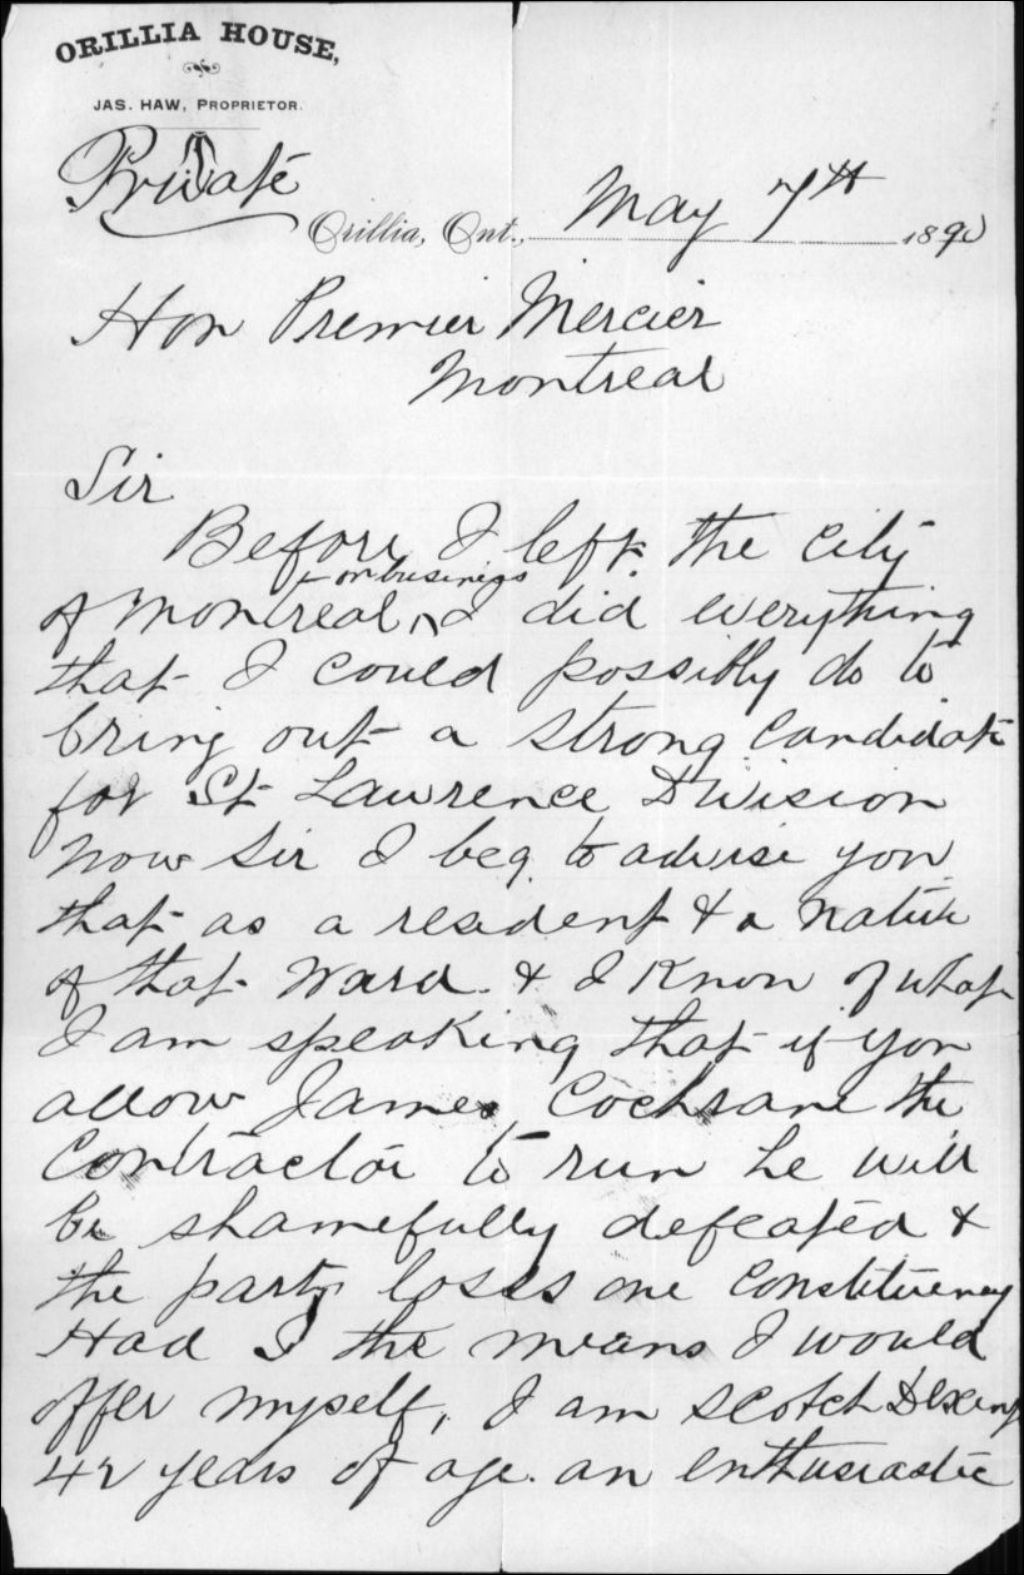 ORILLIA HOUSE,
JAS. HAW, PROPRIETOR.
Private
Orillia, Ont., May 7th 1890
Hon Premier Mercier
Montreal
Sir
Before I left the City
on business
of Montreal, I did everything
that I could possibly do to
bring out a strong Candidate
for St Lawrence Division
Now Sir I beg to advise you
that as a resident & a native
of that Ward & I Know of what
I am speaking that if you
allow James Cochrane the
Contractor to run he will
be shamefully defeated &
the party loses one Constituency
Had I the means I would
offer myself, I am Scotch Descent
42 years of age. an enthusiastic